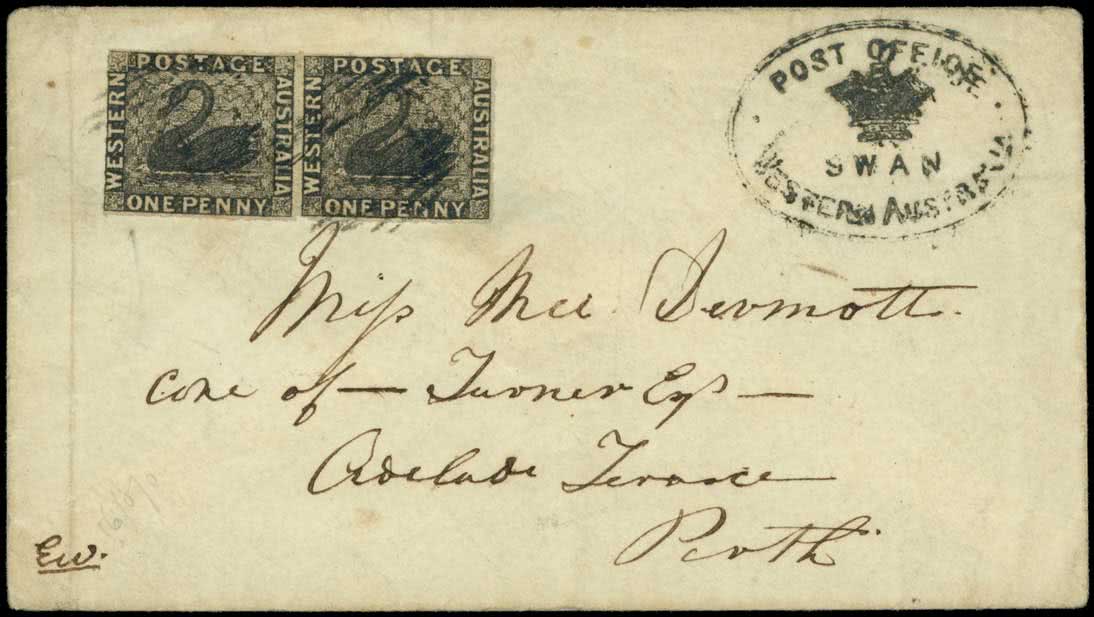 POSTAGE
WESTERN
AUSTRALIA
ONE PENNY
POSTAGE
WESTERN
AUSTRALIA
ONE PENNY
POST OFFICE
SWAN
WESTERN AUSTRALIA
Miss Mac Dermott.
care of — Turner Esq —
Adelade Terrace
Perth
EW.